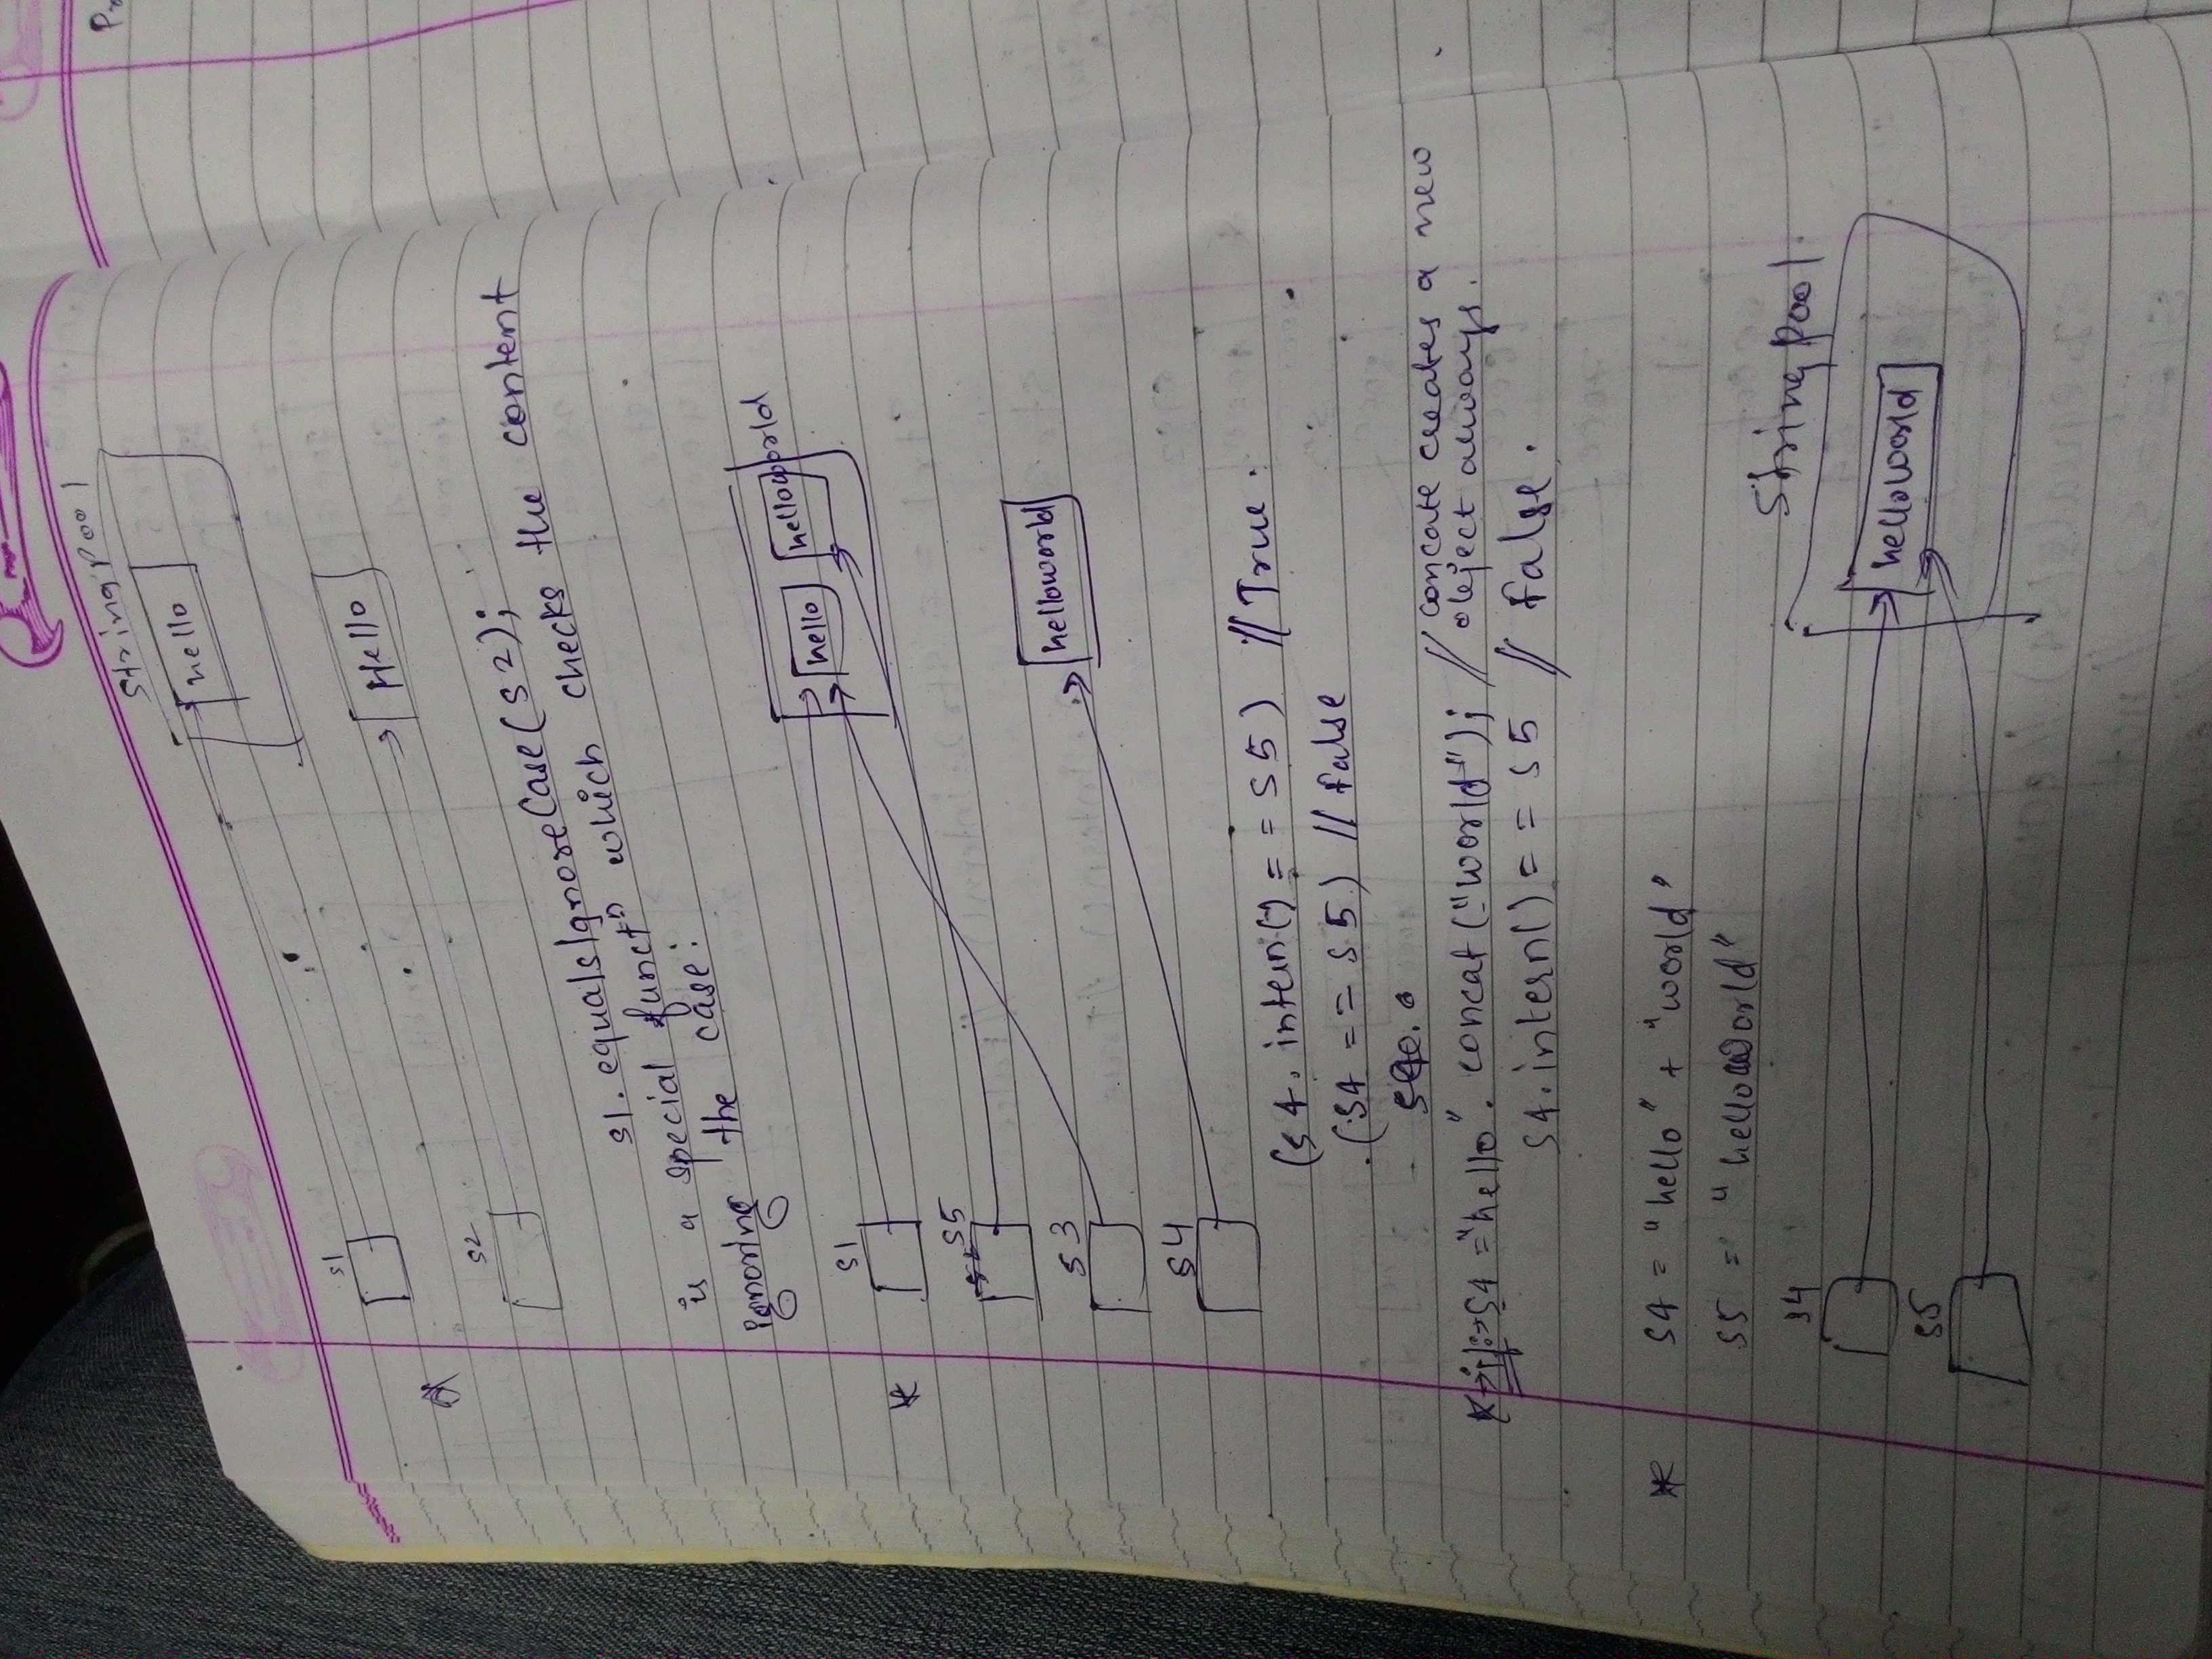 Page
StringPool
hello
s1
Hello
s2
s1.equalsIgnoreCase(s2);
is a special functⁿ which checks the content
ignoring the case:
hello helloworld
s1
s5
s3
helloworld
s4
(s4.intern() == s5) // True.
(s4 == s5) // False
if:→ s4 = "hello".concat("world"); // concate creates a new
object always.
s4.intern() == s5 // False.
s4 = "hello" + "world"
s5 = "helloworld"
StringPool
s4
helloworld
s5
Pr